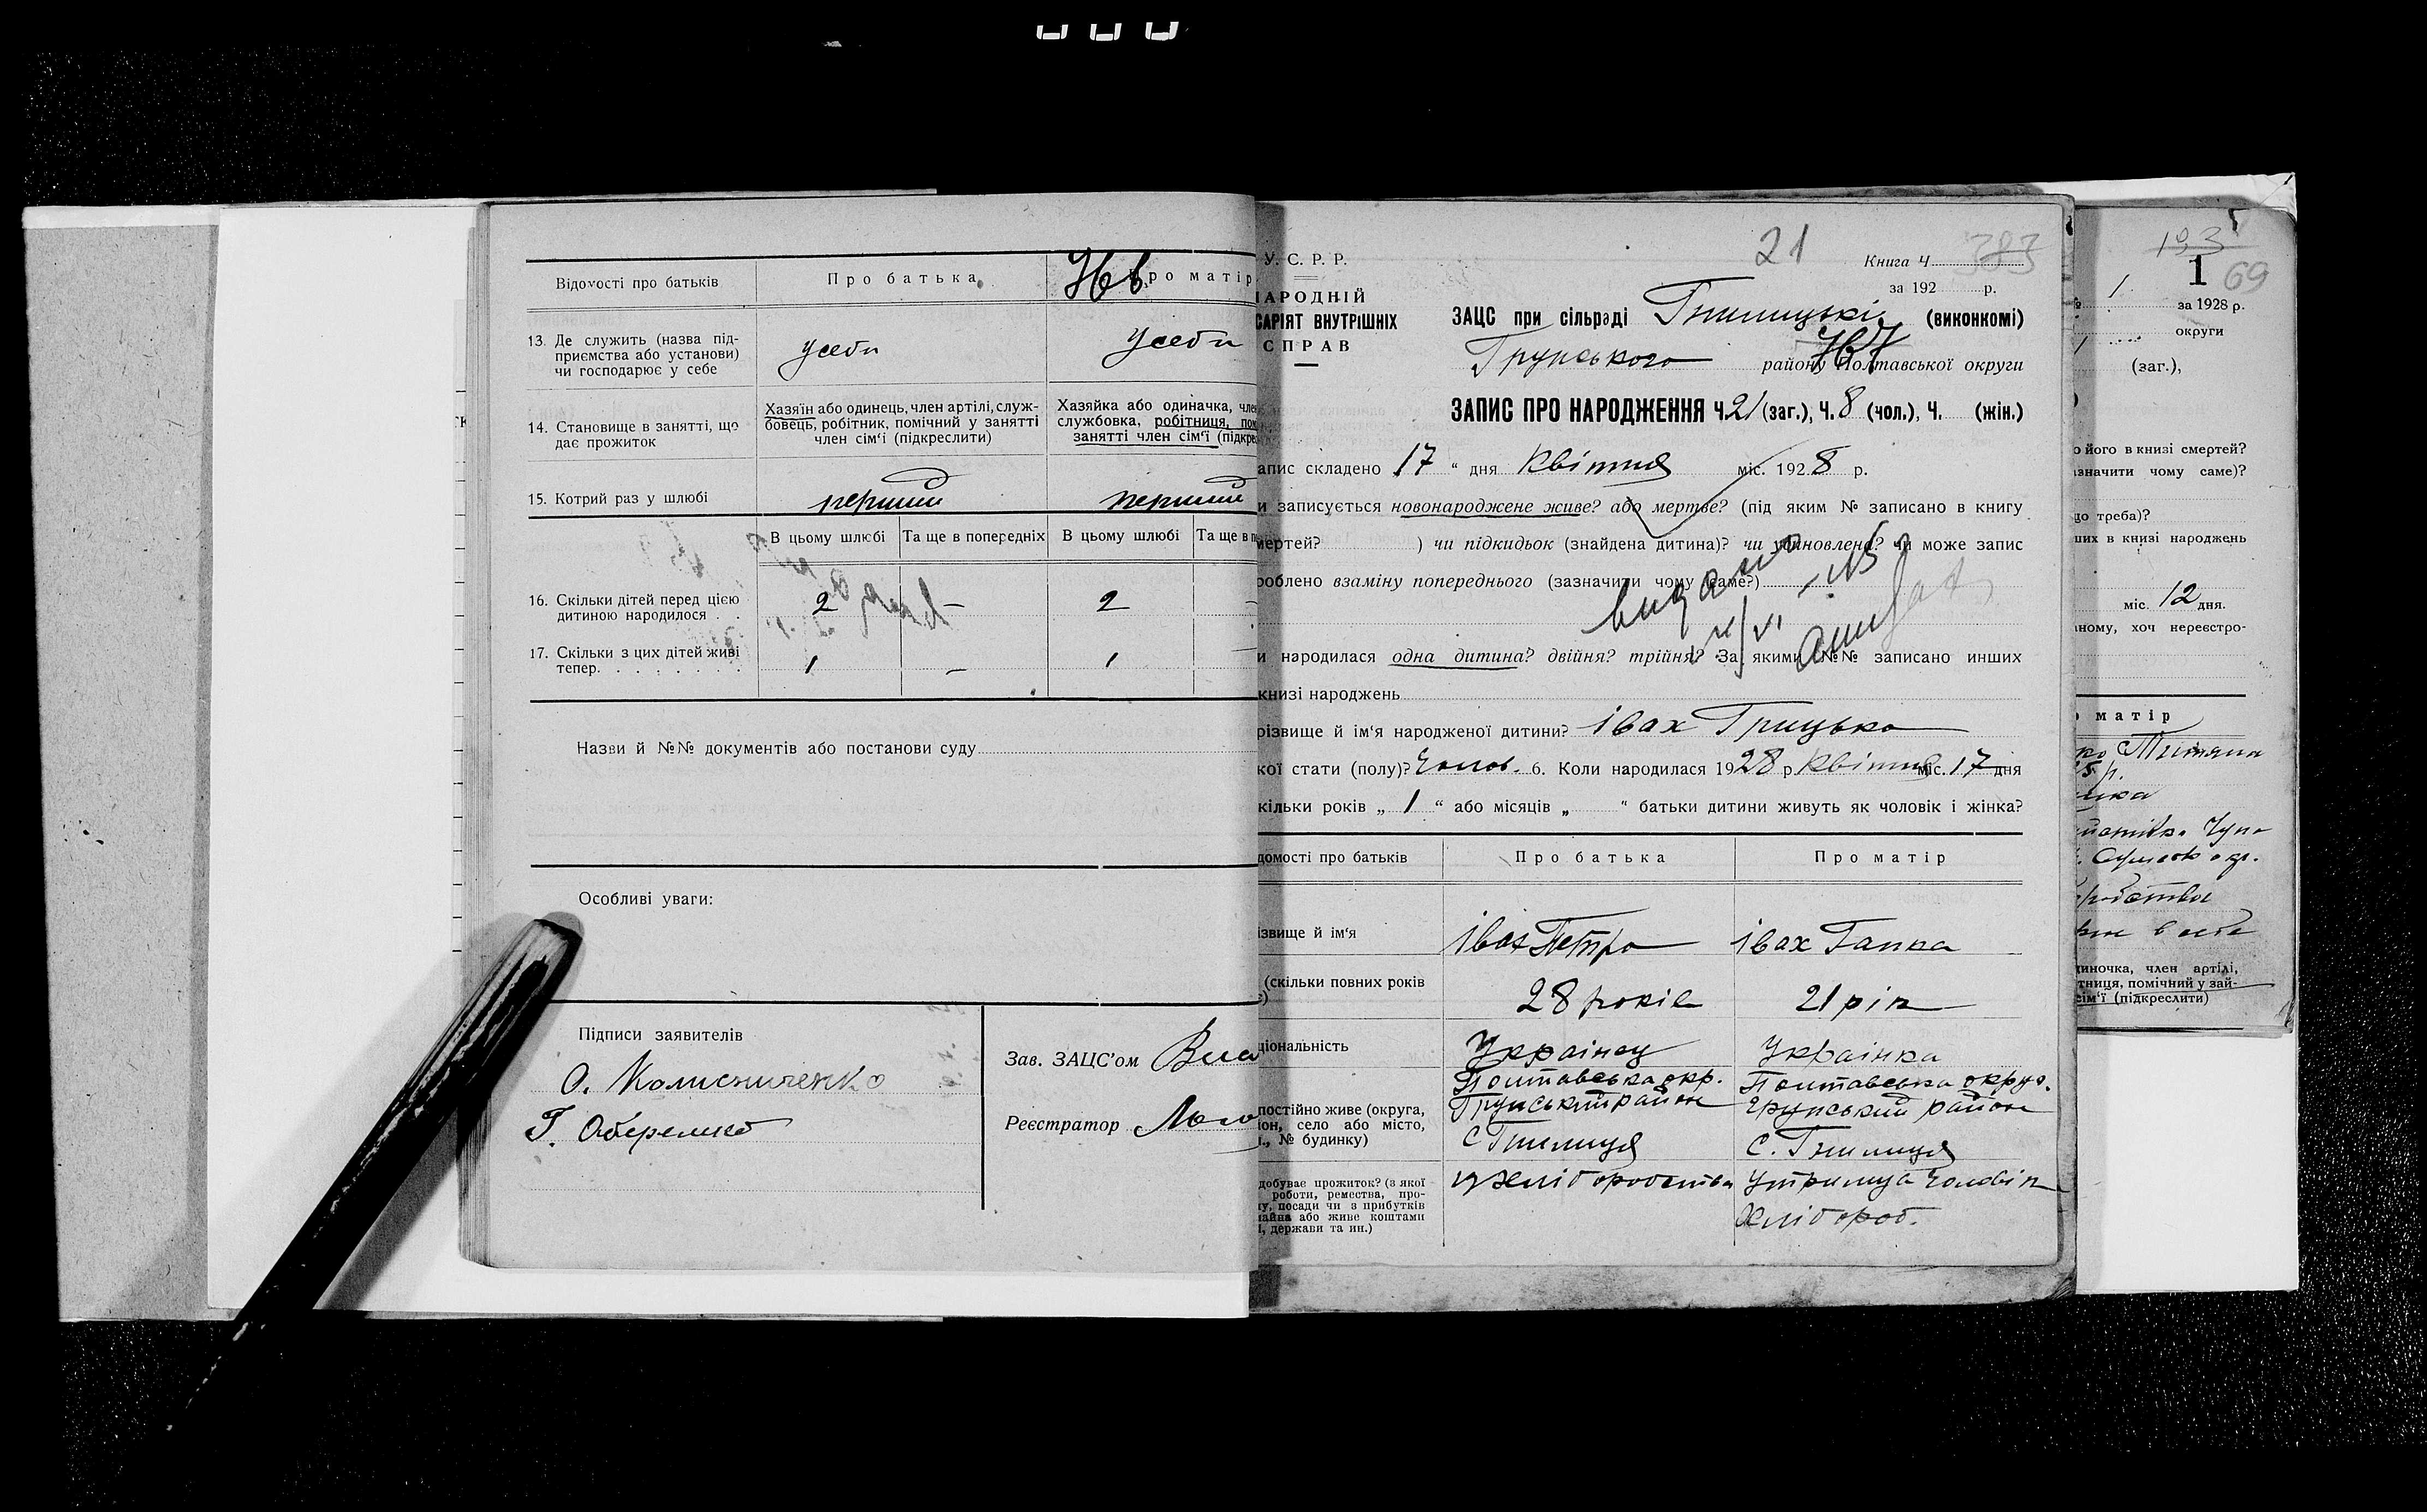 Відомості про батьків
Про батька
Про матір
13. Де служить (назва під-
приємства або установи)
чи господарює у себе
усебе
усебе
14. Становище в занятті, що
дає прожиток
Хазяїн або одинець, член артілі, служ-
бовець, робітник, помічний у занятті
член сім'ї (підкреслити)
Хазяйка або одиначка, чле
службовка, робітниця, пом
занятті член сім'ї (підкре
15. Котрий раз у шлюбі
перший
перший
В цьому шлюбі
Та ще в попередніх
В цьому шлюбі
Та ще в п
16. Скільки дітей перед цією
дитиною народилося . .
2
–
2
–
17. Скільки з цих дітей живі
тепер. . . . . . . .
1
–
1
Назви й №№ документів або постанови суду
Особливі уваги:
Підписи заявителів
О. Колісниченко
Г.
Зав. ЗАЦС'ом
Реєстратор
У. С. Р. Р.
НАРОДНІЙ
САРІЯТ ВНУТРІШНІХ
СПРАВ
21
Книга Ч 383
за 192 р.
ЗАЦС при сільраді Гнилицькі (виконкомі)
Грунського району Полтавської округи
ЗАПИС ПРО НАРОДЖЕННЯ Ч. 21 (заг.), Ч. 8 (чол.), Ч. (жін.)
апис складено 17 " дня квітня міс. 1928 р.
и записується новонароджене живе? або мертве? (під яким № записано в книгу
мертей? ) чи підкидьок (знайдена дитина)? чи установлена? чи може запис
роблено взаміну попереднього (зазначити чому саме?)
видано
и народилася одна дитина? двійня? трійня? За якими №№ записано инших
книзі народжень
різвище й ім'я народженої дитини? Івах Грицько
кої стати (полу)? Чолов. 6. Коли народилася 1928 р. квітня міс. 17 дня
кільки років „ 1 " або місяців „ " батьки дитини живуть як чоловік і жінка?
домості про батьків
Про батька
Про матір
ізвище й ім'я
Івах Петро
Івах Гапка
(скільки повних років
28 років
21 рік
ціональність
Українец
Українка
постійно живе (округа,
йон, село або місто,
., № будинку)
Полтавська окр.
Грунський район
с Гнилиця
Полтавська округ.
Грунський район
с. Гнилиця
добуває прожиток? (з якої
роботи, ремества, про-
у, посади чи з прибутків
майна або живе коштами
, держави та ин.)
із хліборобства
Утримує чоловік
хлібороб.
193
1
69
1
за 1928 р.
округи
(заг.),
о його в книзі смертей?
значити чому саме)?
що треба)?
ших в книзі народжень
міс. 12 дня.
ному, хоч нереєстро-
матір
Тетяна
иночка, член артілі,
тниця, помічний у зай-
сім'ї (підкреслити)